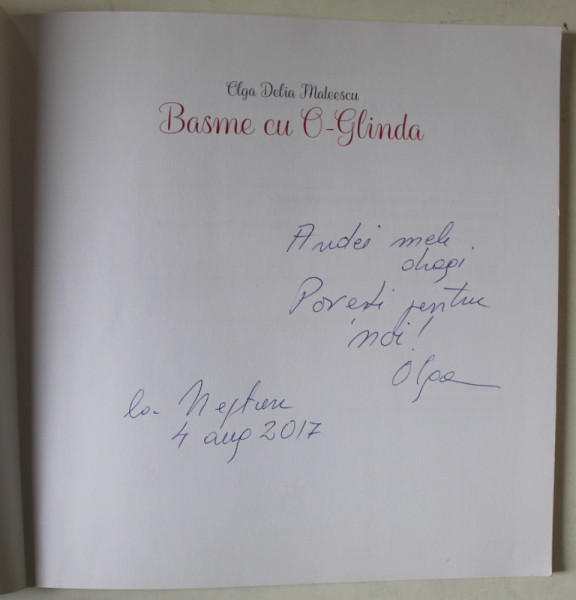 Olga Delia Mateescu
Basme cu O-Glinda
Andei mele
dragi
Povești pentru
noi!
Olga
la Neptun
4 aug 2017